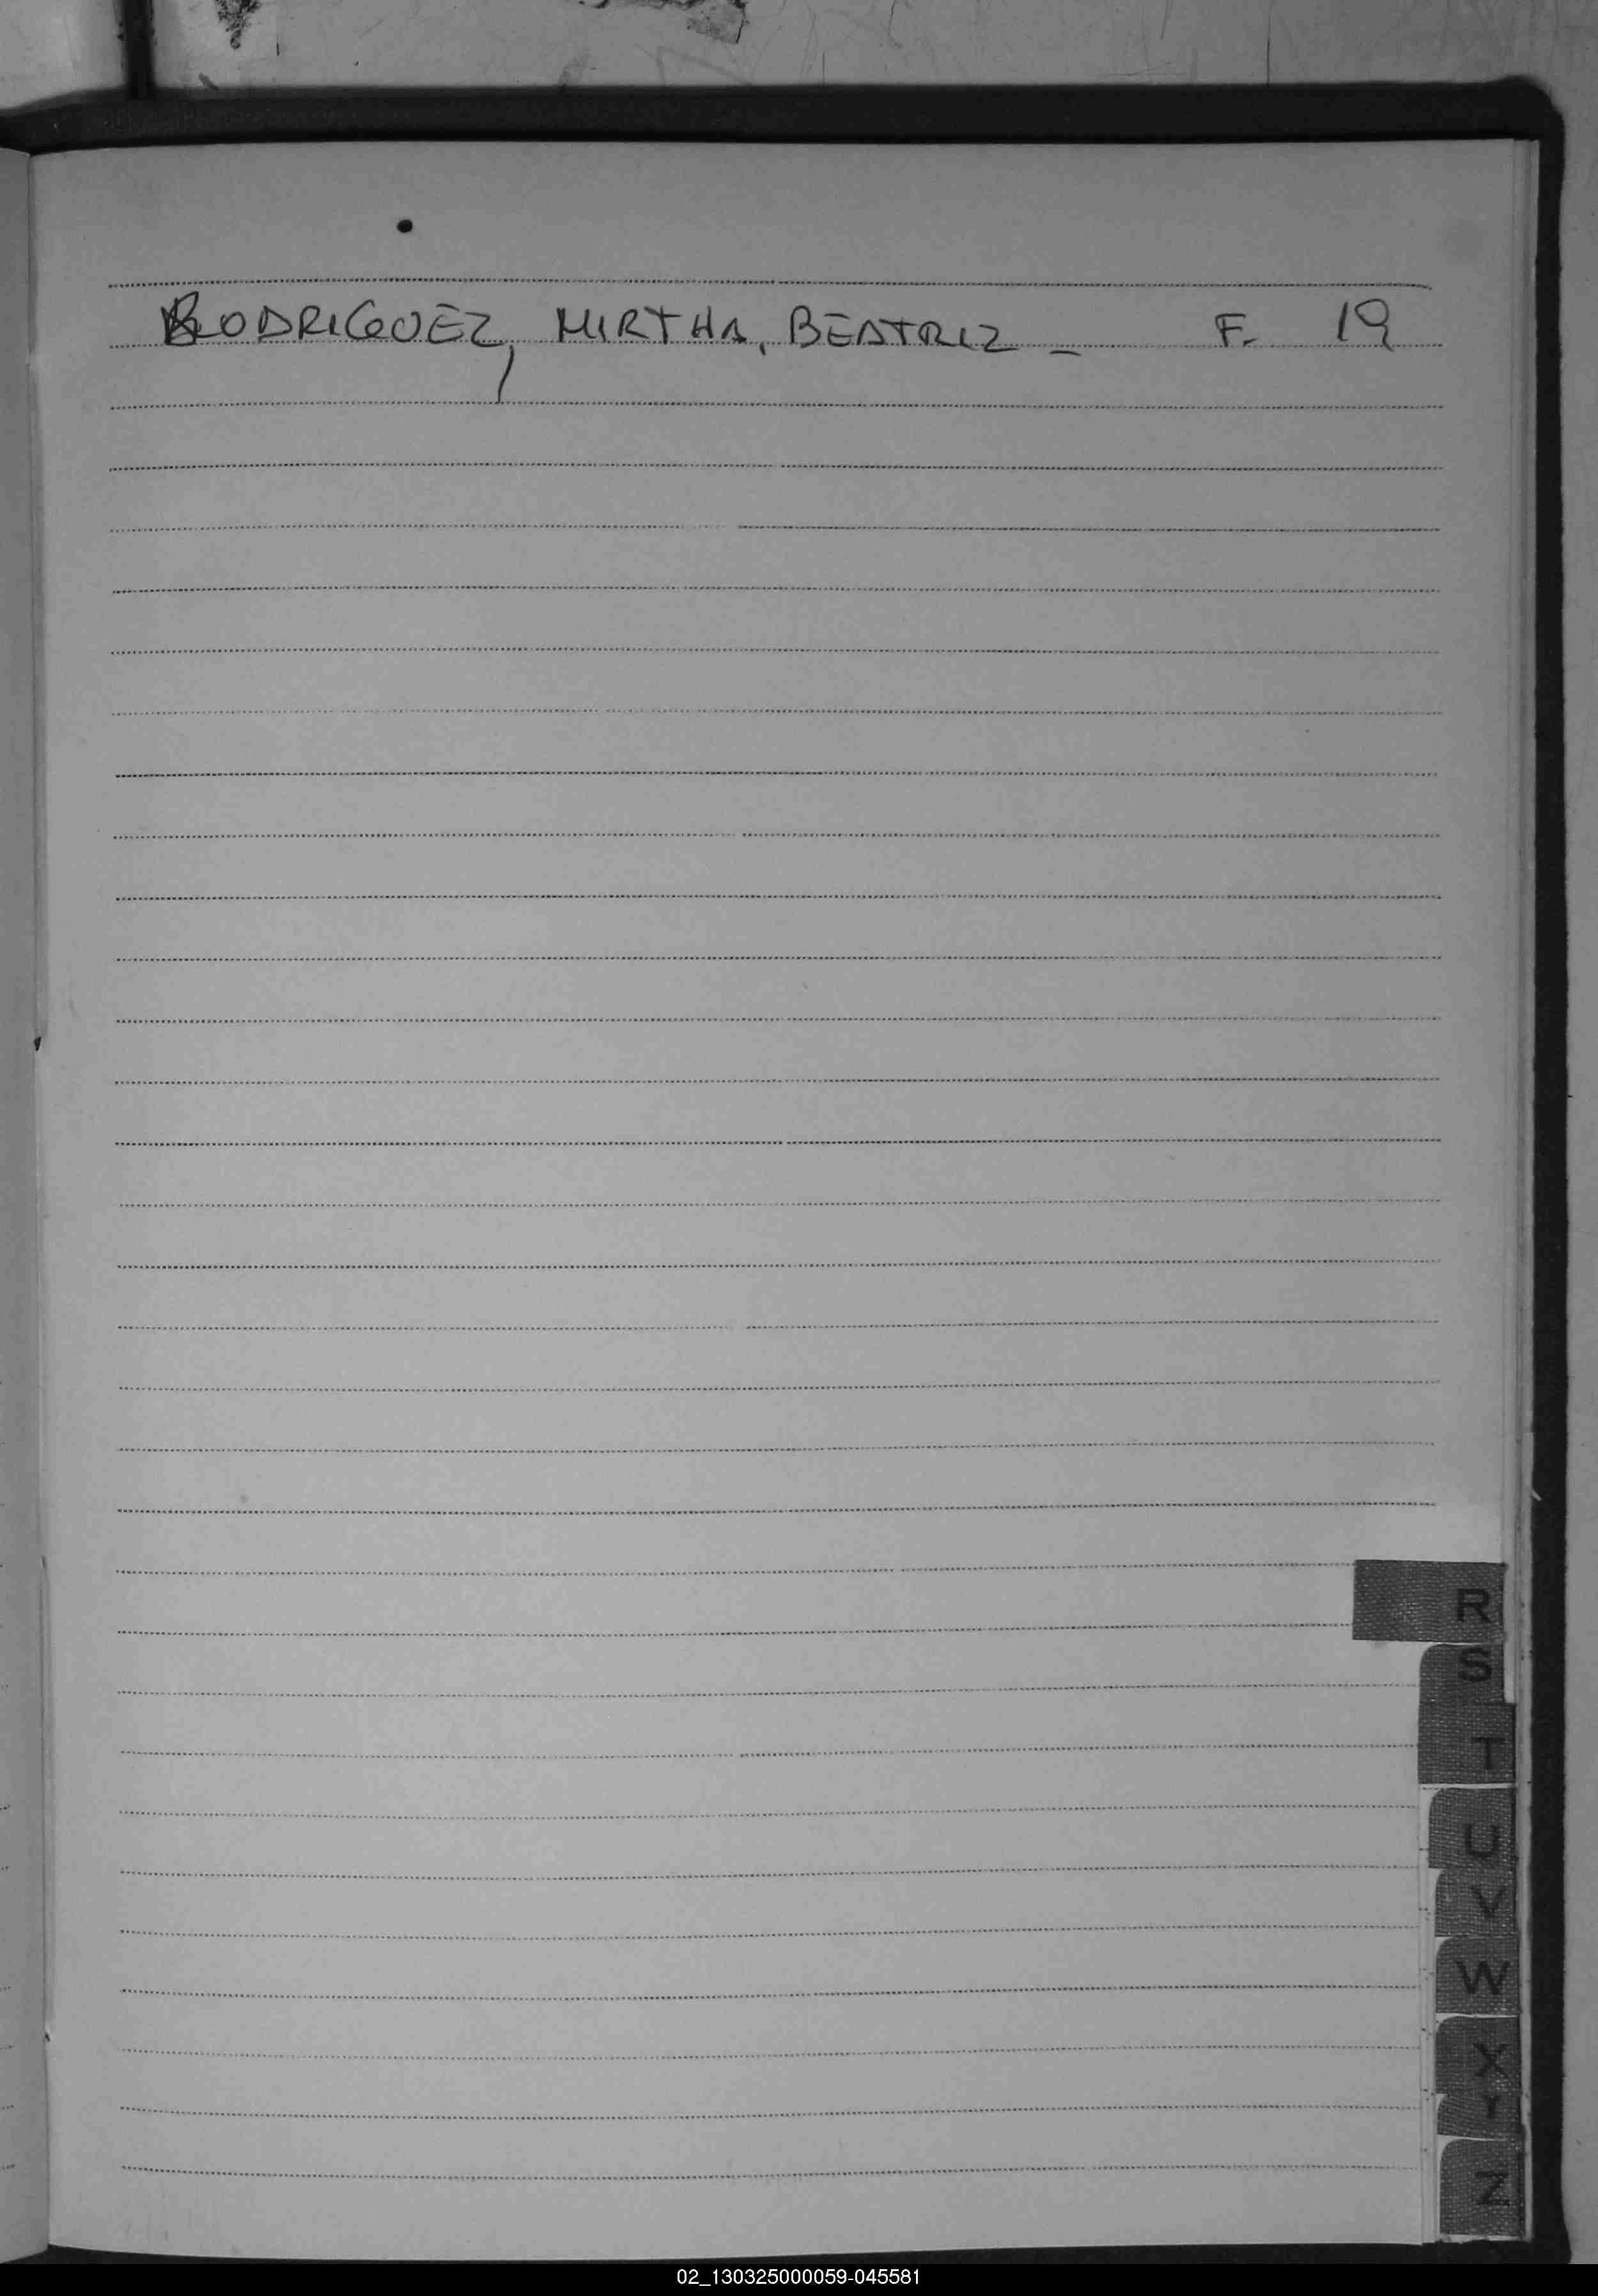 RODRIGUEZ, MIRTHA, BEATRIZ - F. 19
R
S
T
U
V
W
X
Y
Z
02_130325000059-045581